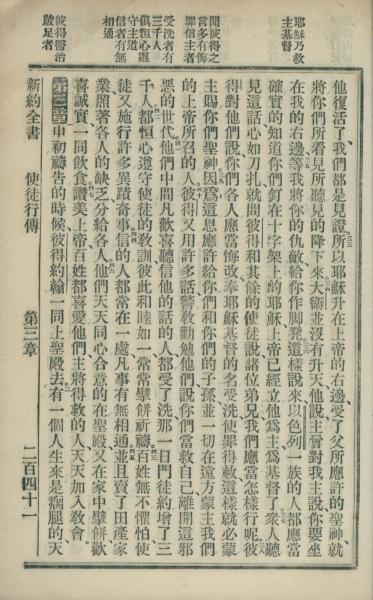 耶穌乃救
主基督
聞彼得之
言多有悔
罪信主者
受洗者有
三千人
俱恒心遵
守主道
信者有無
相通
彼得醫治
跛足者
他復活了我們都是見證所以耶穌升在上帝的右邊受了父所應許的聖神就
將你們所看見所聽見的降下來大衞並沒有升天他說主曾對我主說你要坐
在我的右邊等我將你的仇敵給你作脚凳這樣說來以色列一族的人都應當
確實的知道你們釘在十字架上的耶穌上帝已經立他爲主爲基督了衆人聽
見這話心如刀扎就問彼得和其餘的使徒說諸位弟兄我們應當怎樣行呢彼
得對他們說你們各人應當悔改奉耶穌基督的名受洗使罪得赦這樣就必蒙
主賜你們聖神因爲這恩應許給你們和你們的子孫並一切在遠方蒙主我們
的上帝所召的人彼得又用許多話警敎勸勉他們說你們當救自己離開這邪
惡的世代他們中間凡歡喜聽信他的話的人都受了洗那一日門徒約增了三
千人都恒心遵守使徒的敎訓彼此和睦如一常常擘餅祈禱百姓無不懼怕使
徒又施行許多異蹟奇事信的人都常在一處凡事有無相通並且賣了田產家
業照著各人的缺乏分給各人他們天天同心合意的在聖殿又在家中擘餅歡
喜誠實一同飲食讚美上帝百姓都喜愛他們主將得救的人天天加入敎會
第三章申初禱告的時候彼得約翰一同上聖殿去有一個人生來是瘸腿的天
新約全書 使徒行傳 第三章 二百四十一